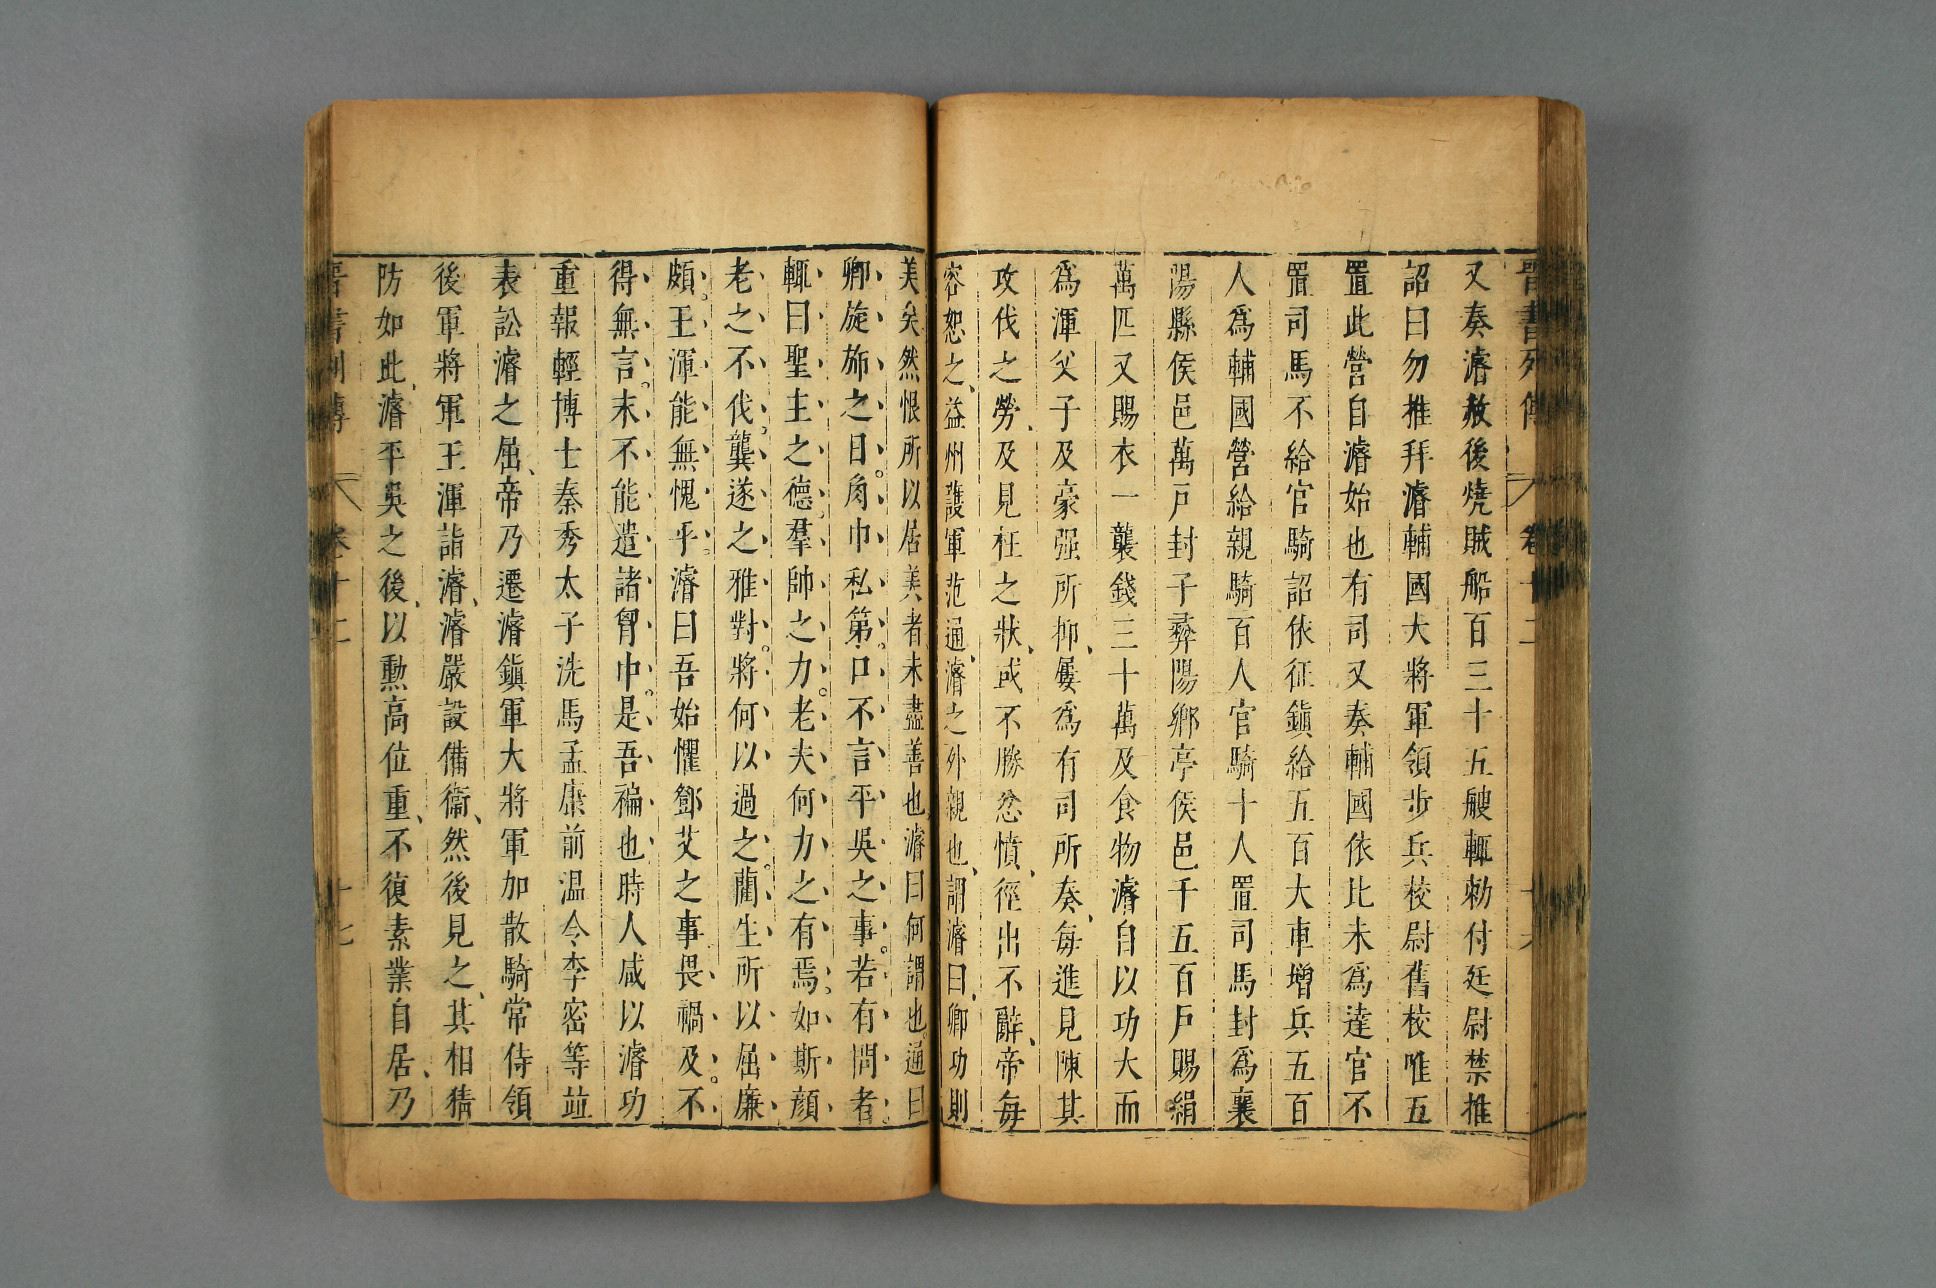 晉書列傳 卷十二
又奏濬赦後燒賊船百三十五艘輒勑付廷尉禁推
詔曰勿推拜濬輔國大將軍領步兵校尉舊校唯五
置此營自濬始也有司又奏輔國依比未爲達官不
置司馬不給官騎詔依征鎭給五百大車增兵五百
人爲輔國營給親騎百人官騎十人置司馬封爲襄
陽縣侯邑萬戸封子彝陽鄉亭侯邑千五百戸賜絹
萬匹又賜衣一襲錢三十萬及食物濬自以功大而
爲渾父子及豪强所抑、屢爲有司所奏、每進見陳其
攻伐之勞、及見枉之狀、或不勝忿憤、徑出不辭、帝每
容恕之、益州護軍范通、濬之外親也、謂濬曰、卿功則
美矣然恨所以居美者未盡善也濬曰何謂也通曰
卿旋旆之日。角巾私第。口不言平吳之事。若有問者。
輒曰聖主之德。羣帥之力。老夫何力之有焉。如斯顔
老之不伐。龔遂之雅對。將何以過之。藺生所以屈廉
頗。王渾能無愧乎。濬曰吾始懼鄧艾之事畏禍及。不
得無言。末不能遣諸胷中。是吾褊也時人咸以濬功
重報輕博士秦秀太子洗馬孟康前温令李密等竝
表訟濬之屈、帝乃遷濬鎭軍大將軍加散騎常侍領
後軍將軍王渾詣濬、濬嚴設備衞、然後見之、其相猜
防如此、濬平吳之後、以勲高位重、不復素業自居、乃
晉書列傳 卷十二 十七